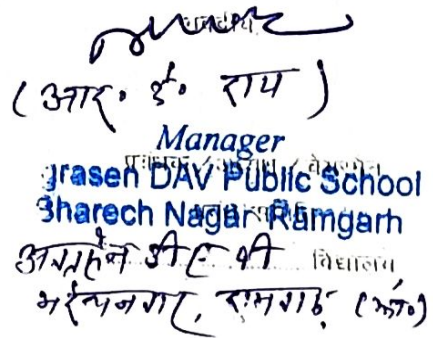 (आर॰ ई॰ राय)
Manager
grasen DAV Public School
Bharech Nagar Ramgarh
अग्रसेन डी ए वी विद्यालय
भरेचनगर, रामगढ़ (झा॰)